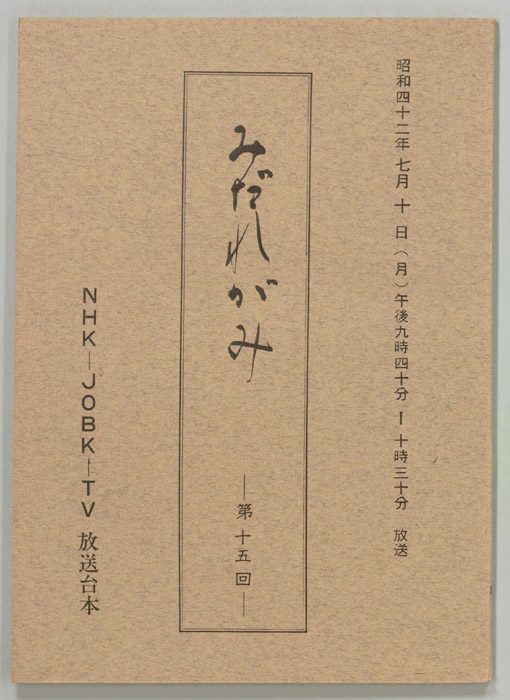 昭和四十二年七月十日(月)午後九時四十分ー十時三十分 放送
みだれがみ
―第十五回―
NHK―JOBK―TV 放送台本